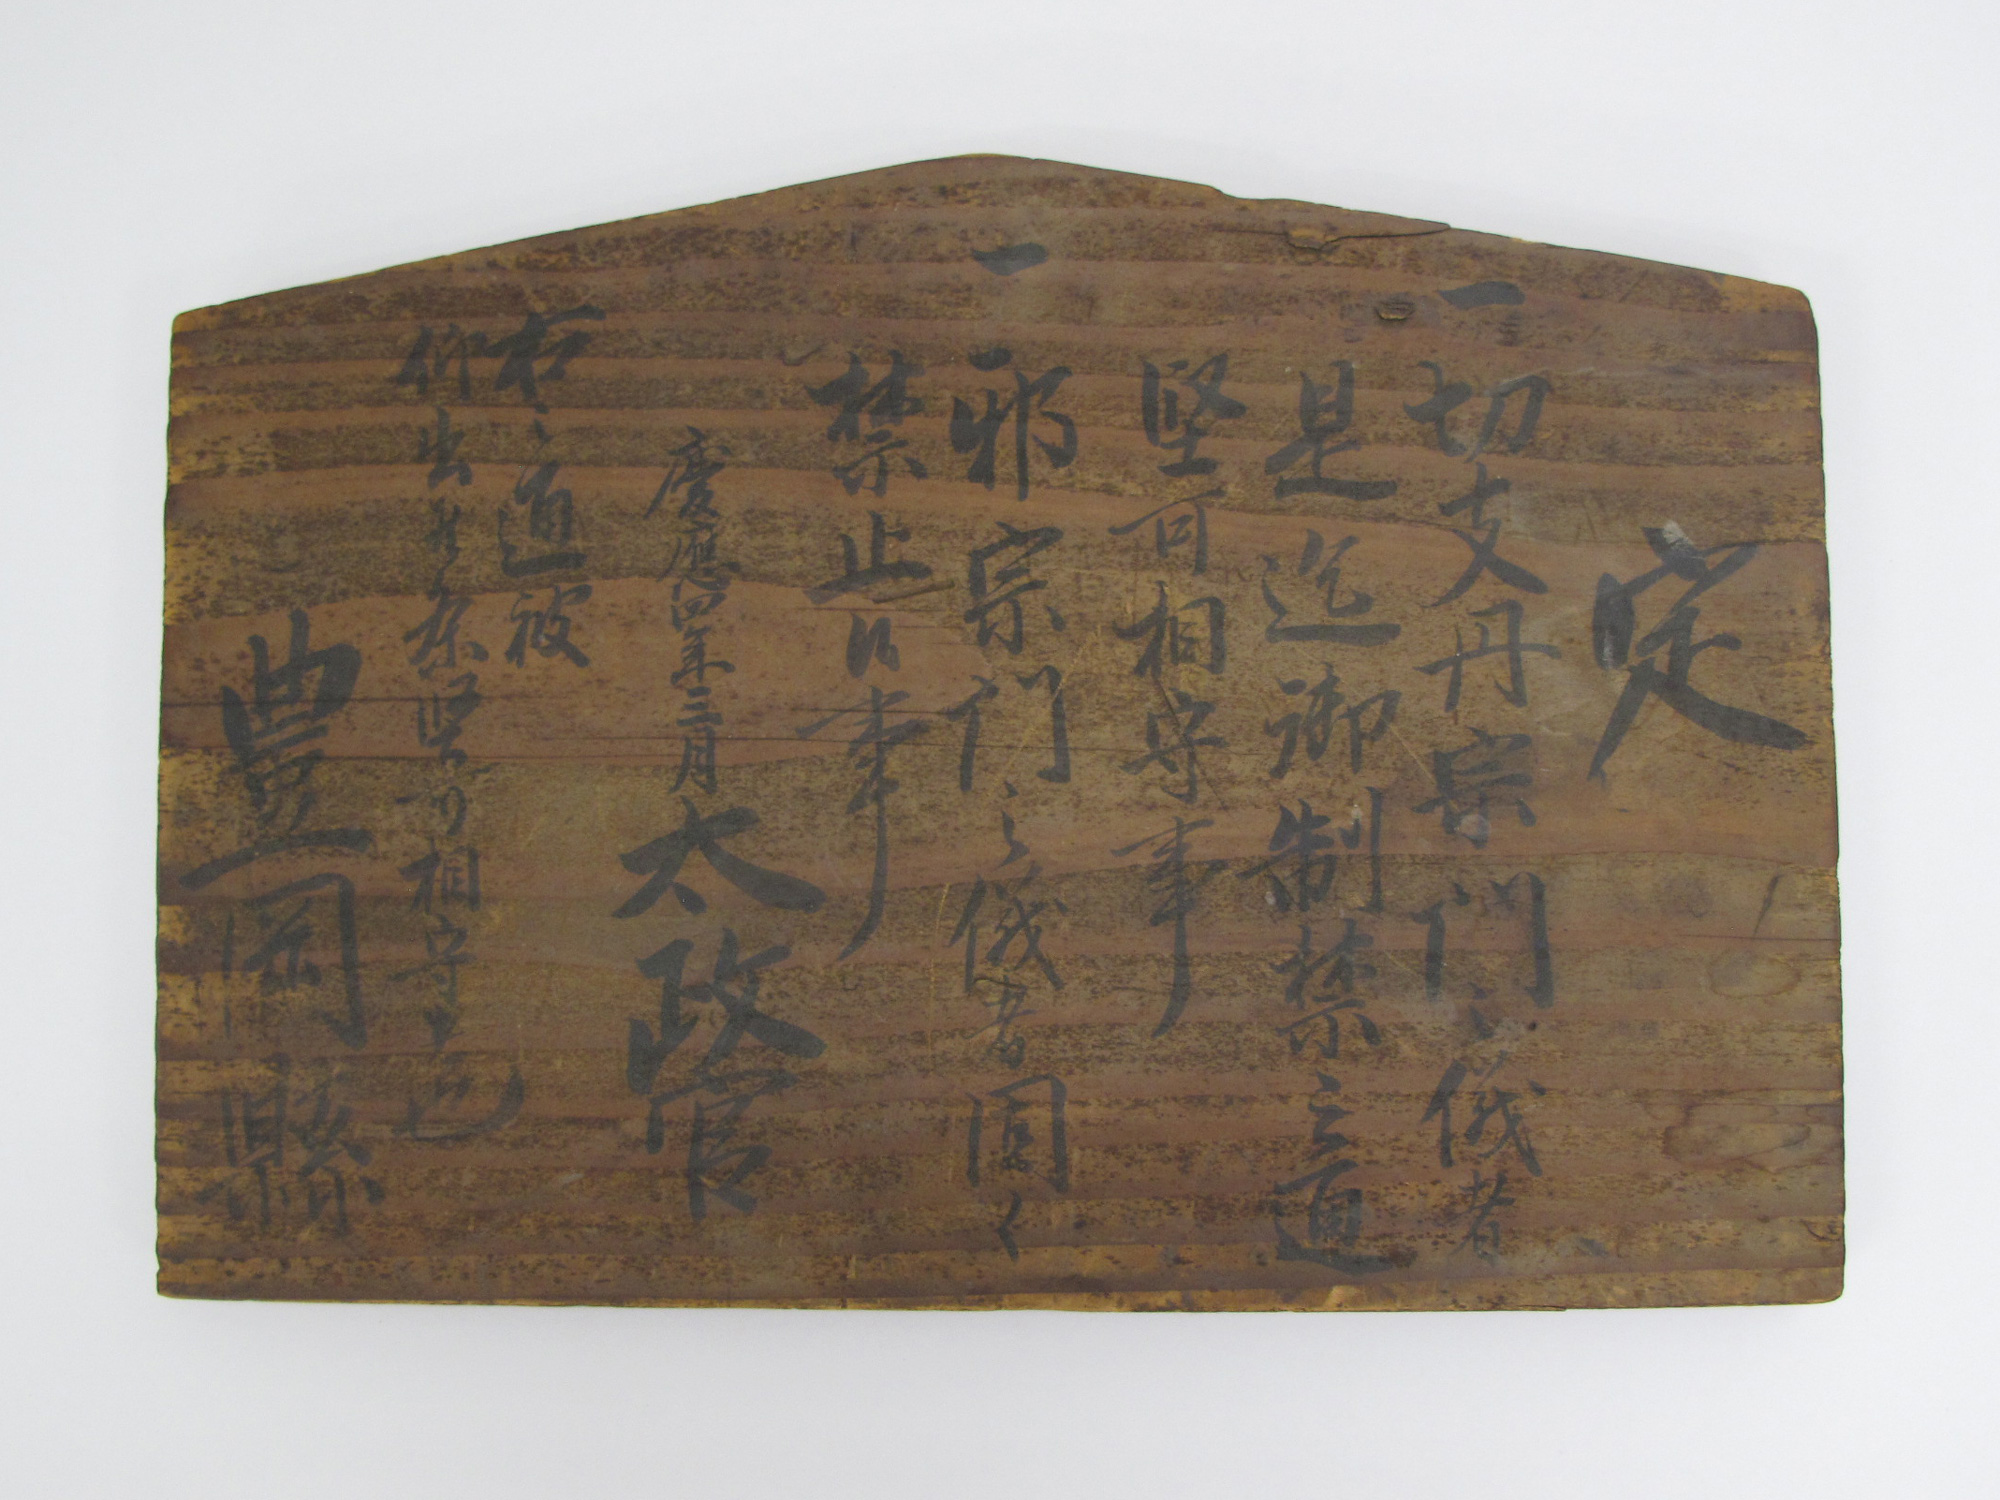 定
一切支丹宗門之儀者
是迄御制禁之通
堅可相守事
一邪宗門之儀者固く
禁止候事
慶應四年三月 太政官
右之通被
仰出候条堅可相守者也
豊岡縣